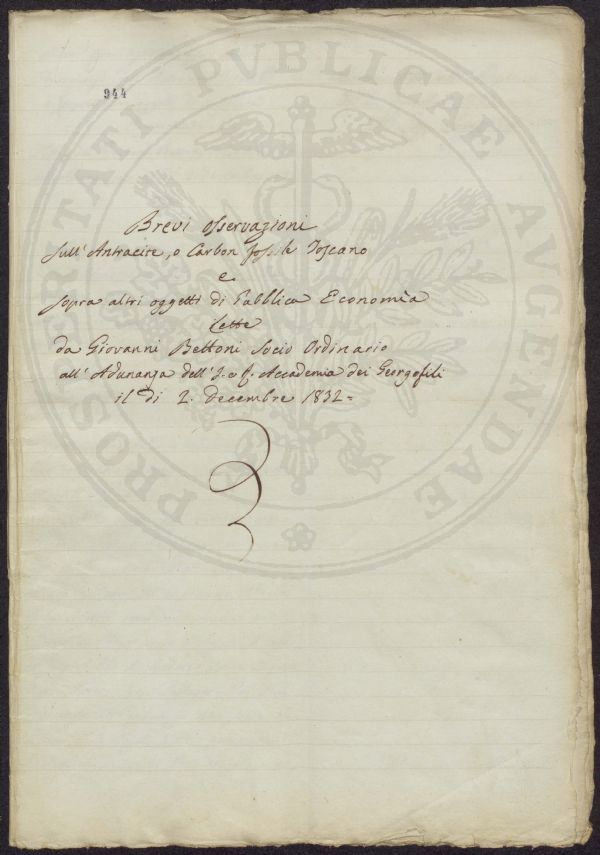 944
PROSPERITATI PVBLICAE AVGENDAE
Brevi osservazioni
sull'Antracite, o Carbon fossile Toscano
e
sopra altri oggetti di Pubblica Economia
Lette
da Giovanni Bettoni Socio Ordinario
all'Adunanza dell'I. e R. Accademia dei Georgofili
il dì 2. Decembre 1832=